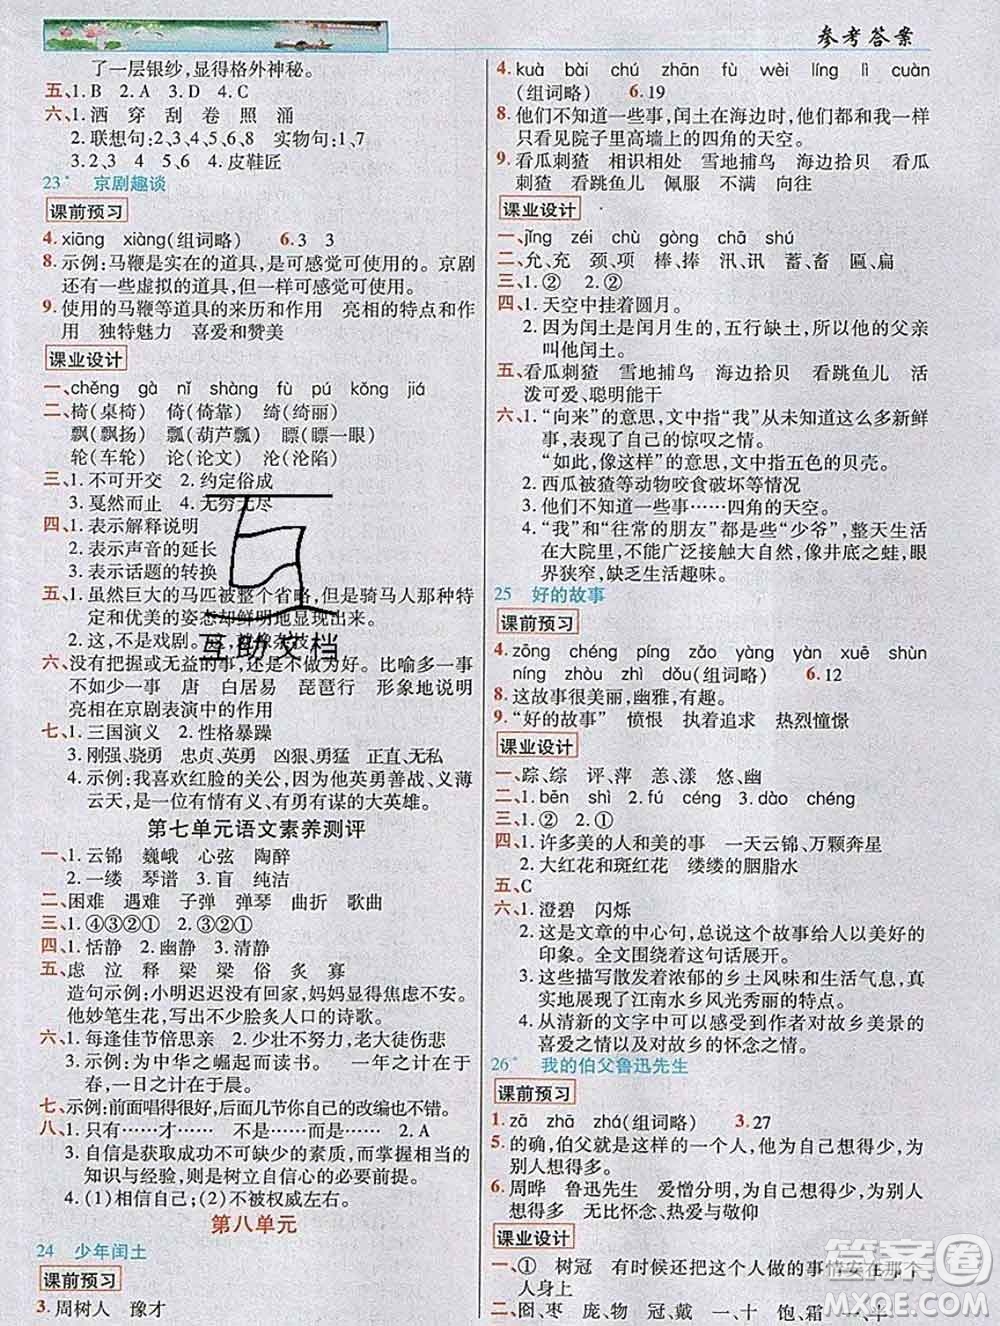 参考答案
了一层银纱,显得格外神秘。
五、1. B 2. A 3. D 4. C
六、1. 洒 穿 刮 卷 照 涌
2. 联想句:2、3、4、5、6、8 实物句:1、7
3. 2、2 4 4. 皮鞋匠
23* 京剧趣谈
课前预习
4. xiāng xiàng(组词略) 6. 3 3
8. 示例:马鞭是实在的道具,是可感觉可使用的。京剧
还有一些虚拟的道具,但一样可感觉可使用。
9. 使用的马鞭等道具的来历和作用 亮相的特点和作
用 独特魅力 喜爱和赞美
课业设计
一、chěng gà nǐ shàng fù pú kōng jiá
二、椅(桌椅) 倚(倚靠) 绮(绮丽)
飘(飘扬) 瓢(葫芦瓢) 瞟(瞟一眼)
轮(车轮) 论(论文) 沦(沦陷)
三、1. 不可开交 2. 约定俗成
3. 戛然而止 4. 无穷无尽
四、1. 表示解释说明
2. 表示声音的延长
3. 表示话题的转换
五、1. 虽然巨大的马匹被整个省略,但是骑马人的特定
和优美的姿态却鲜明地显现出来。
2. 这,不是戏剧。这,就像杂技。
六、没有把握或无益的事,还是不做为好。比喻多一事
不如少一事 唐 白居易 琵琶行 形象地说明
亮相在京剧表演中的作用
七、1. 三国演义 2. 性格暴躁
3. 刚强、骁勇 忠贞、英勇 凶狠、勇猛 正直、无私
4. 示例:我喜欢红脸的关公,因为他英勇善战、义薄
云天,是一位有情有义、有勇有谋的大英雄。
第七单元语文素养测评
一、1. 云锦 巍峨 心弦 陶醉
2. 一缕 琴谱 3. 盲 纯洁
二、困难 遇难 子弹 弹琴 曲折 歌曲
三、1. ④③②① 2. ④③②①
四、1. 恬静 2. 幽静 3. 清静
五、虑 泣 释 梁 梁 俗 炙 寡
造句示例:小明迟迟没有回家,妈妈显得焦虑不安。
他妙笔生花,写出不少脍炙人口的诗歌。
六、1. 每逢佳节倍思亲 2. 少壮不努力,老大徒伤悲
3. 示例:为中华之崛起而读书。 一年之计在于
春,一日之计在于晨。
七、示例:前面唱得很好,但后几节你的改编也不错。
八、1. 只有……才…… 不是……而是…… 2. A
3. 自信是获取成功不可缺少的素质,而我们凭借的
知识与经验,则是树立自信心的必要前提。
4. (1)相信自己;(2)不被权威左右。
第八单元
24 少年闰土
课前预习
3. 周树人 豫才
4. kuà bài chú zhān fù wèi líng lì cuàn
(组词略) 6. 19
8. 他们不知道一些事,闰土在海边时,他们都和我一样
只看见院子里高墙上的四角的天空。
9. 看瓜刺猹 相识相处 雪地捕鸟 海边拾贝 看瓜
刺猹 看跳鱼儿 佩服 不满 向往
课业设计
一、jǐng zéi chù gòng chā shú
二、允、充 颈、项 棒、捧 汛、讯 蓄、畜 匾、扁
三、1. ② 2. ②
四、1. 天空中挂着圆月。
2. 因为闰土是闰月生的,五行缺土,所以他的父亲
叫他闰土。
五、看瓜刺猹 雪地捕鸟 海边拾贝 看跳鱼儿 活
泼可爱、聪明能干
六、1. “向来”的意思,文中指“我”从未知道这么多新鲜
事,表现了自己的惊叹之情。
“如此,像这样”的意思,文中指五色的贝壳。
2. 西瓜被猹等动物咬食破坏等情况
3. 他们不知道一些事……四角的天空。
4. “我”和“往常的朋友”都是些“少爷”,整天生活
在大院里,不能广泛接触大自然,像井底之蛙,眼
界狭窄,缺乏生活趣味。
25 好的故事
课前预习
4. zōng chéng píng zǎo yàng yàn xuē shùn
níng zhòu zhì dǒu(组词略) 6. 12
8. 这故事很美丽,幽雅,有趣。
9. “好的故事” 愤恨 执着追求 热烈憧憬
课业设计
一、踪、综 评、萍 恙、漾 悠、幽
二、1. bēn shí 2. fú céng 3. dào chéng
三、1. ② 2. ①
四、1. 许多美的人和美的事 一天云锦、万颗奔星
2. 大红花和斑红花 缕缕的胭脂水
五、C
六、1. 澄碧 闪烁
2. 这是文章的中心句,总说这个故事给人以美好的
印象。全文围绕着这句话展开。
3. 这些描写散发着浓郁的乡土风味和生活气息,真
实地展现了江南水乡风光秀丽的特点。
4. 从清新的文字中可以感受到作者对故乡美景的
喜爱之情以及对故乡的怀念之情。
26* 我的伯父鲁迅先生
课前预习
1. zā zhā zhá(组词略) 3. 27
5. 的确,伯父就是这样的一个人,他为自己想得少,为
别人想得多。
6. 周晔 鲁迅先生 爱憎分明,为自己想得少,为别人
想得多 无比怀念、热爱与敬仰
课业设计
一、① 树冠 有时候还把这个人做的事情安在那个
人身上
二、囼、枣 庞、物 冠、戴 一、十 饱、霜 一、牛
互助文档
答案圈
MXQE.COM